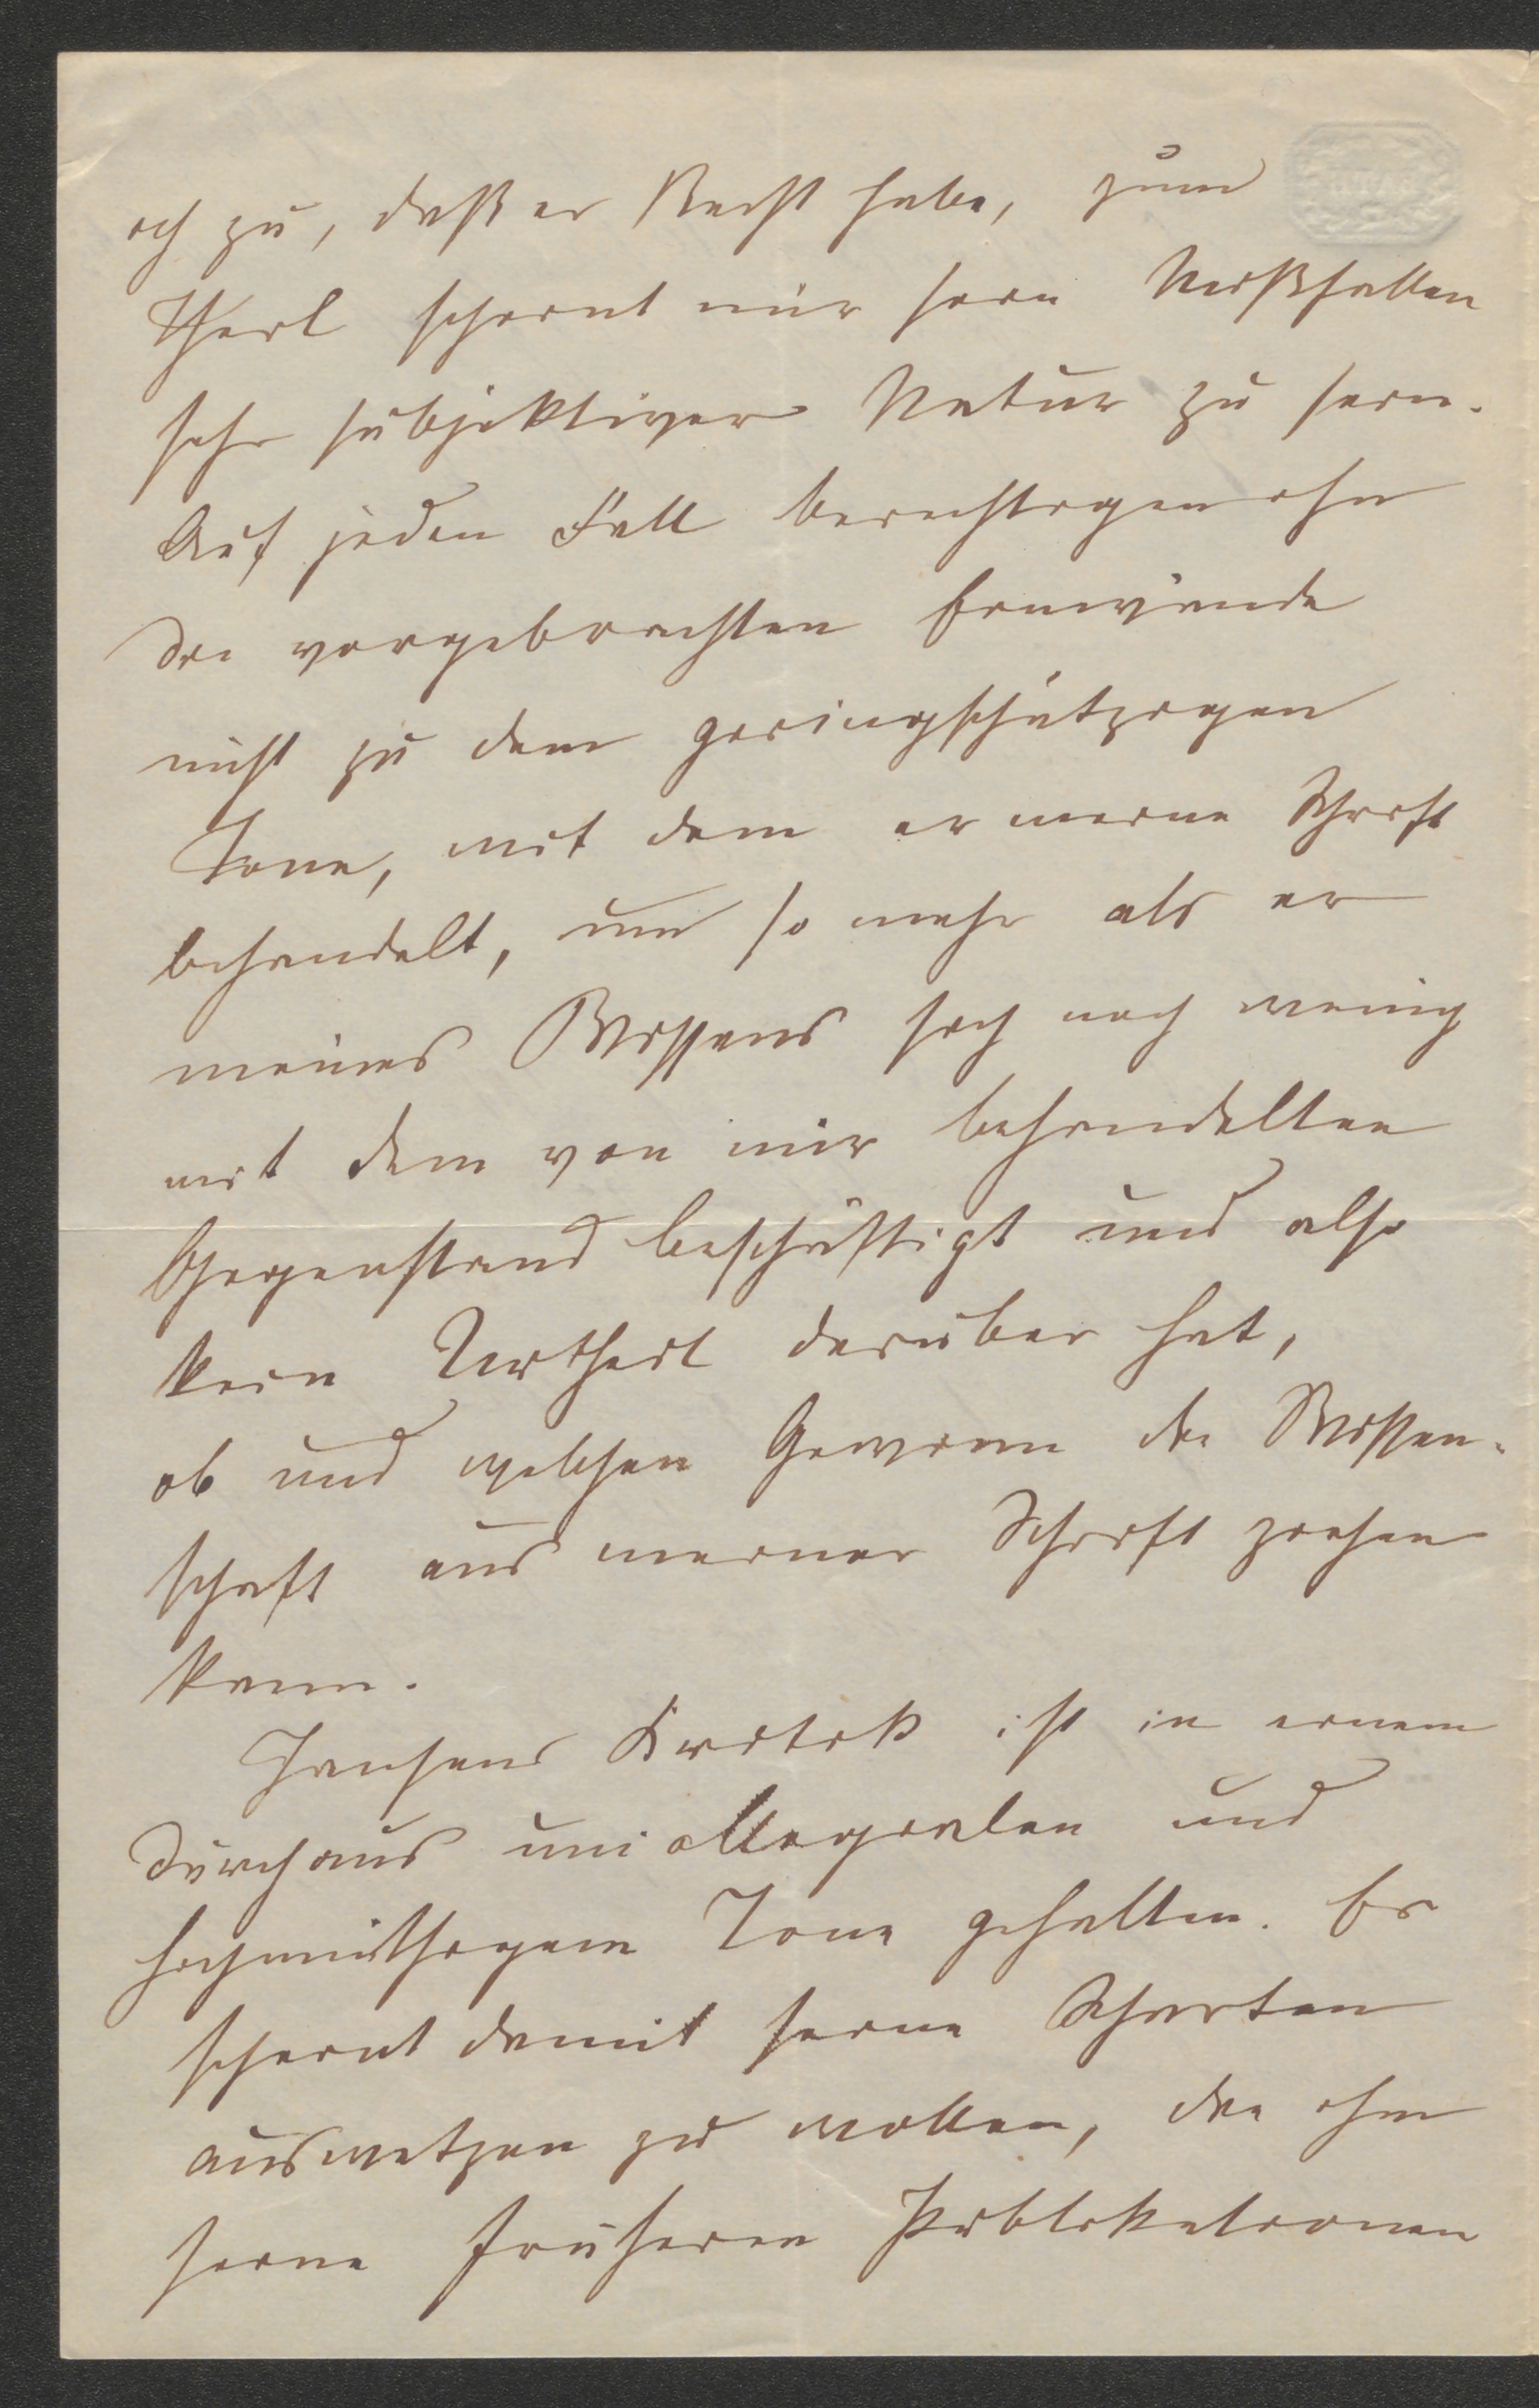 ich zu, daß er Recht habe, zum
Theil scheint mir sein Mißfallen
sehr subjektiver Natur zu sein.
Auf jeden Fall berechtigen ihn
die vorgebrachten Einwände
nicht zu dem geringschätzigen
Tone, mit dem er meine Schrift
behandelt, um so mehr als er
meines Wissens sich noch wenig
mit dem von mir behandelten
Gegenstand beschäftigt und also
kein Urtheil darüber hat,
ob und welchen Gewinn die Wissen-
schaft aus meiner Schrift ziehen
kann.
Jansens Kritik ist in einem
durchaus unicollegialen und
hochmüthigem Tone gehalten. Er
scheint damit seine Scharten
auswetzen zu wollen, die ihm
seine früheren Publikationen